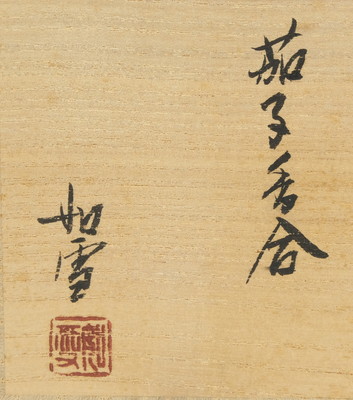 茄子香合
如雪